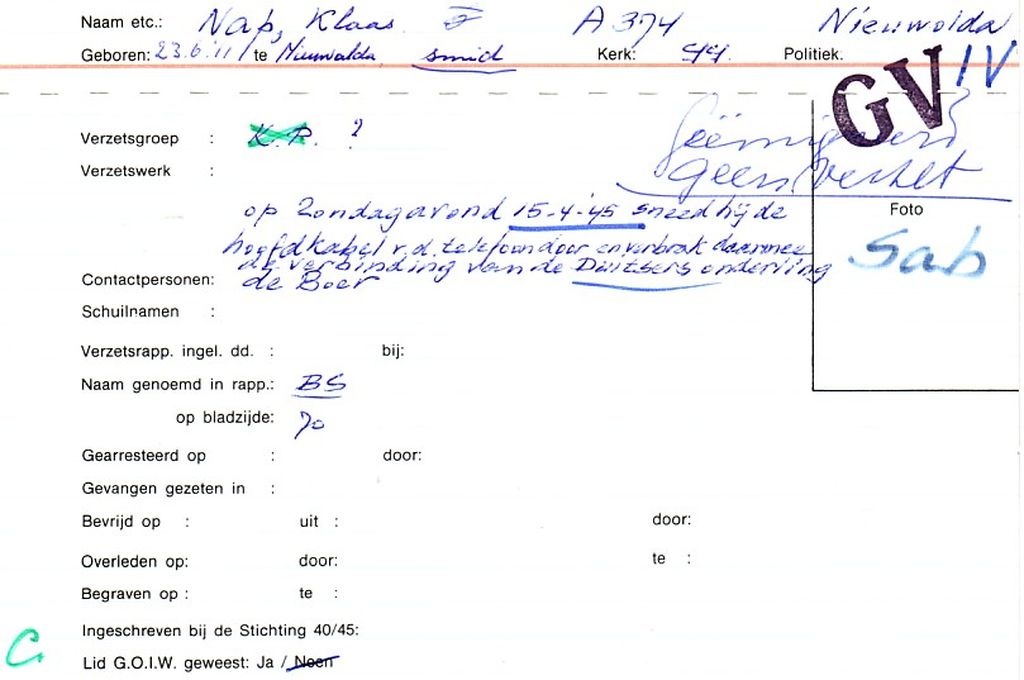 Naam etc.: Nap, Klaas A 374 Nieuwolda
Geboren: 23.6.'11 / te Nieuwolda smid Kerk: Politiek:
GV IV
Verzetsgroep : K.P. ?
Verzetswerk :
Geen Verzet
op Zondagavond 15-4-45 sneed hij de
hoofdkabel v.d. telefoon door en verbrak daarmee
de verbinding van de Duitsers onderling
Foto
Sab
Contactpersonen: de Boer
Schuilnamen :
Verzetsrapp. ingel. dd. : bij:
Naam genoemd in rapp.: BS
op bladzijde: 70
Gearresteerd op : door:
Gevangen gezeten in :
Bevrijd op : uit : door:
Overleden op: door: te :
Begraven op : te :
Ingeschreven bij de Stichting 40/45:
C.
Lid G.O.I.W. geweest: Ja / Neen